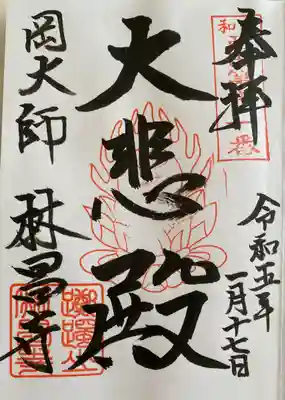 奉拝
令和五年
一月十七日
大悲殿
岡大師
林昌寺
躑躅山